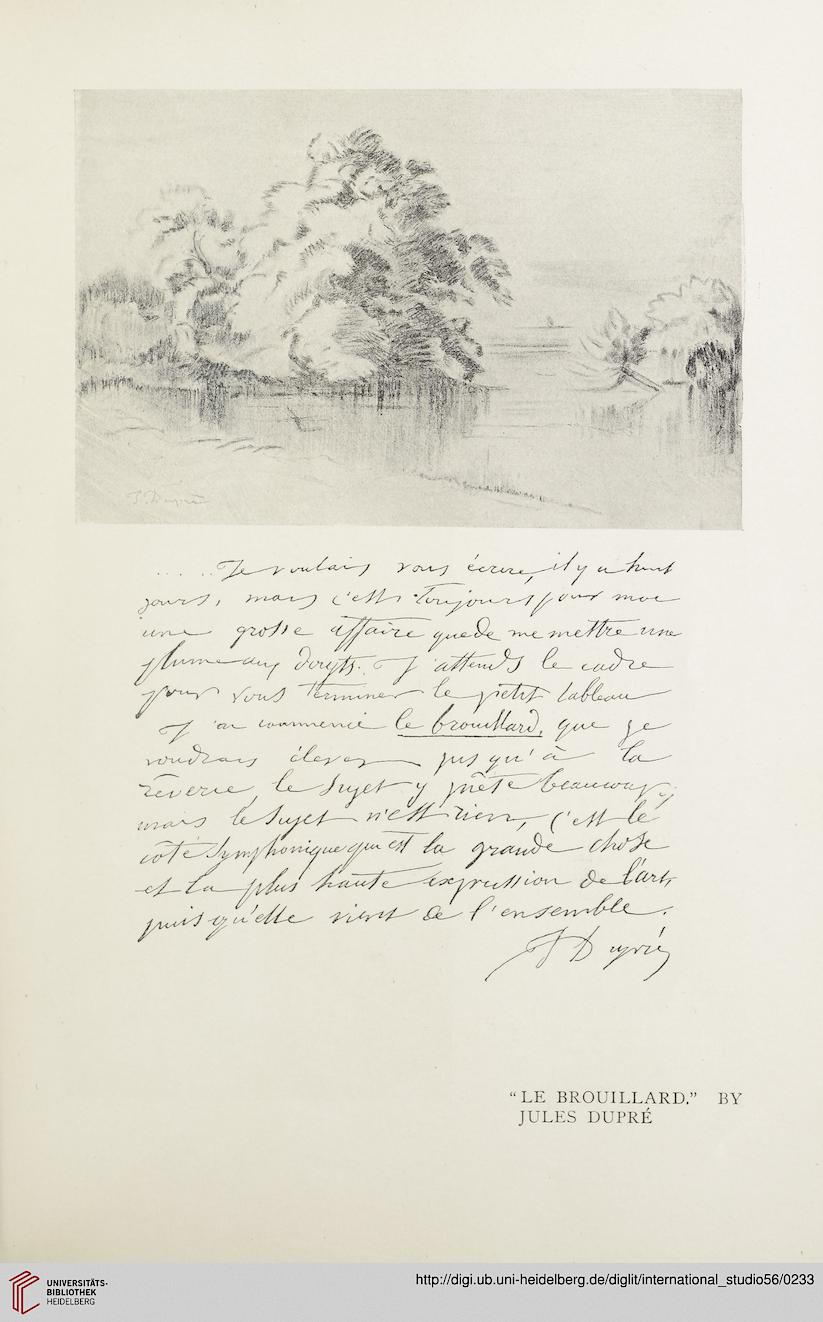 J. Dupré
. . . . . Je voulais vous écrire, il y a huit
jours, mais c'est toujours pour moi
une grosse affaire que de me mettre une
plume aux doigts. J'attends le cadre
pour vous terminer le petit tableau
J'ai commencé le brouillard, que je
voudrais élever jusqu'à la
rêverie, le sujet y prête beaucoup,
mais le sujet n'est rien, c'est le
côté symphonique qui est la grande chose
et la plus haute expression de l'art,
puisqu'elle vient de l'ensemble.
J Dupré
“LE BROUILLARD.” BY
JULES DUPRÉ
UNIVERSITÄTS-
BIBLIOTHEK
HEIDELBERG
http://digi.ub.uni-heidelberg.de/diglit/international_studio56/0233